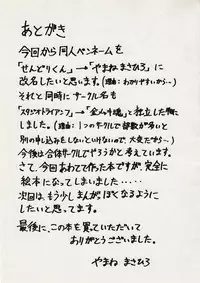 あとがき
今回から同人ペンネームを
「せんどりくん」→「やまねまさひろ」に
改名したいと思います。(理由：わかりやすいから…)
それと同時にサークル名も
「スタジオトライアングル」→「　」と独立した形に
しました。(理由：1つのサークルで部数が多いと
別の申し込みをしないといけないので、大変だから…)
今後は合体サークルでやろうかと考えています。
さて、今回あわてて作った本ですが、完全に
絵本になってしまいました‥‥‥
次回は、もう少しまんがぽくなるように
したいと思ってます。
最後に、この本を買っていただいて
ありがとうございました。
やまね まさひろ